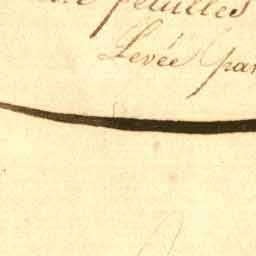 feuilles
Levée par